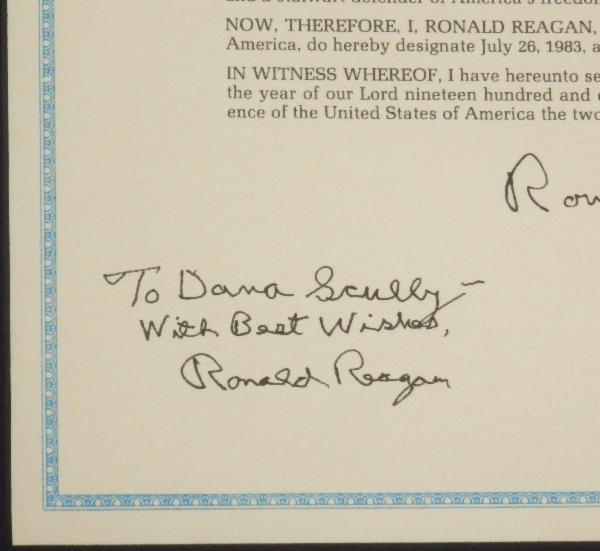 NOW, THEREFORE, I, RONALD REAGAN,
America, do hereby designate July 26, 1983, a
IN WITNESS WHEREOF, I have hereunto se
the year of our Lord nineteen hundred and e
ence of the United States of America the two
Ron
To Dana Scully –
With Best Wishes,
Ronald Reagan